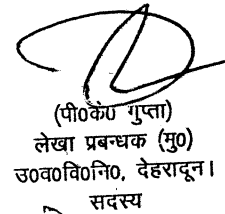 (पी०के० गुप्ता)
लेखा प्रबन्धक (मु०)
उ०व०वि०नि०, देहरादून।
सदस्य